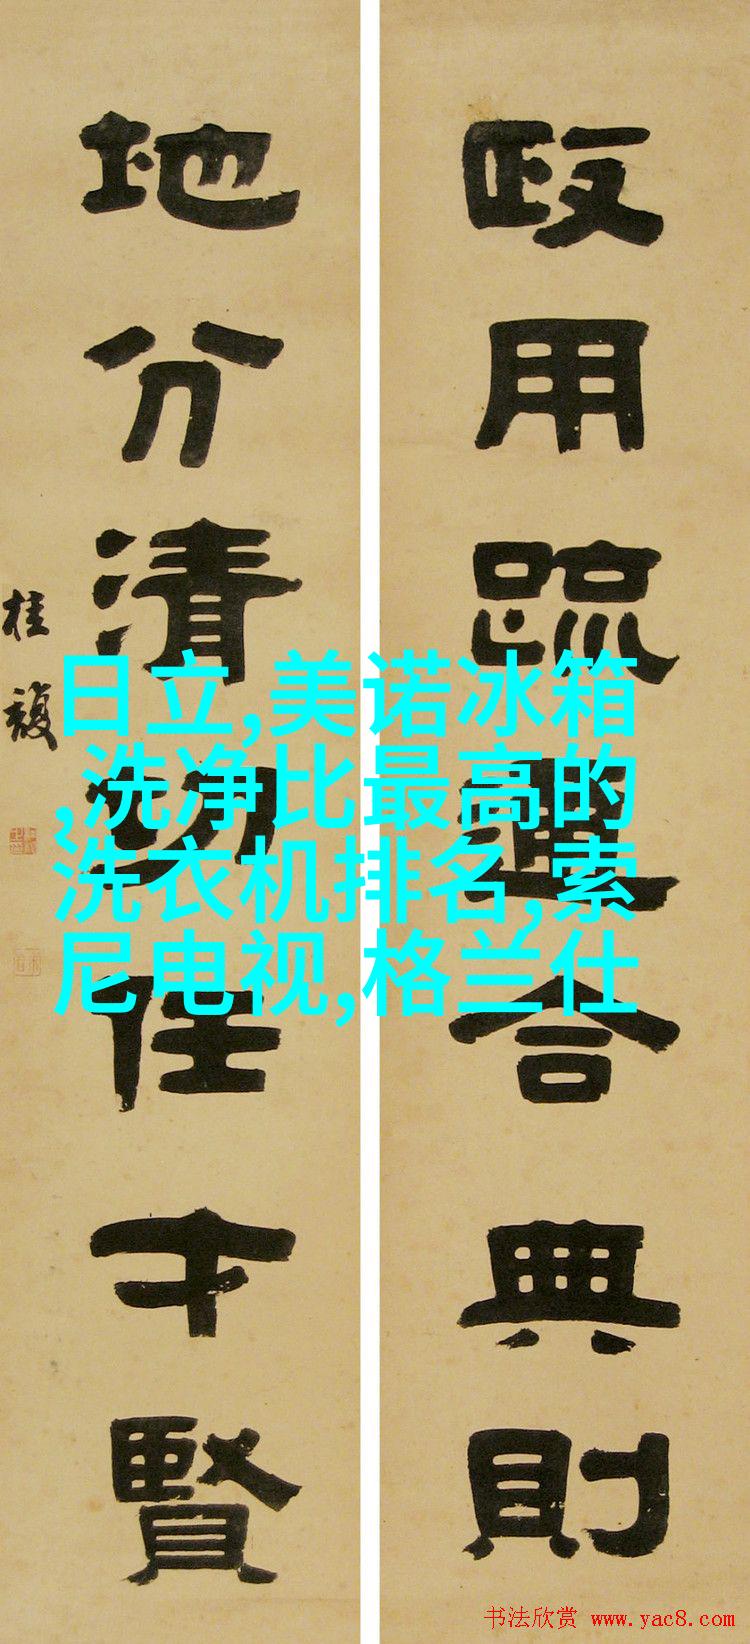 政用疏通合典則
地分清切任才賢
桂馥
日立,美诺冰箱
,洗净比最高的
洗衣机排名,索
尼电视,格兰仕
书法欣赏 www.yac8.com